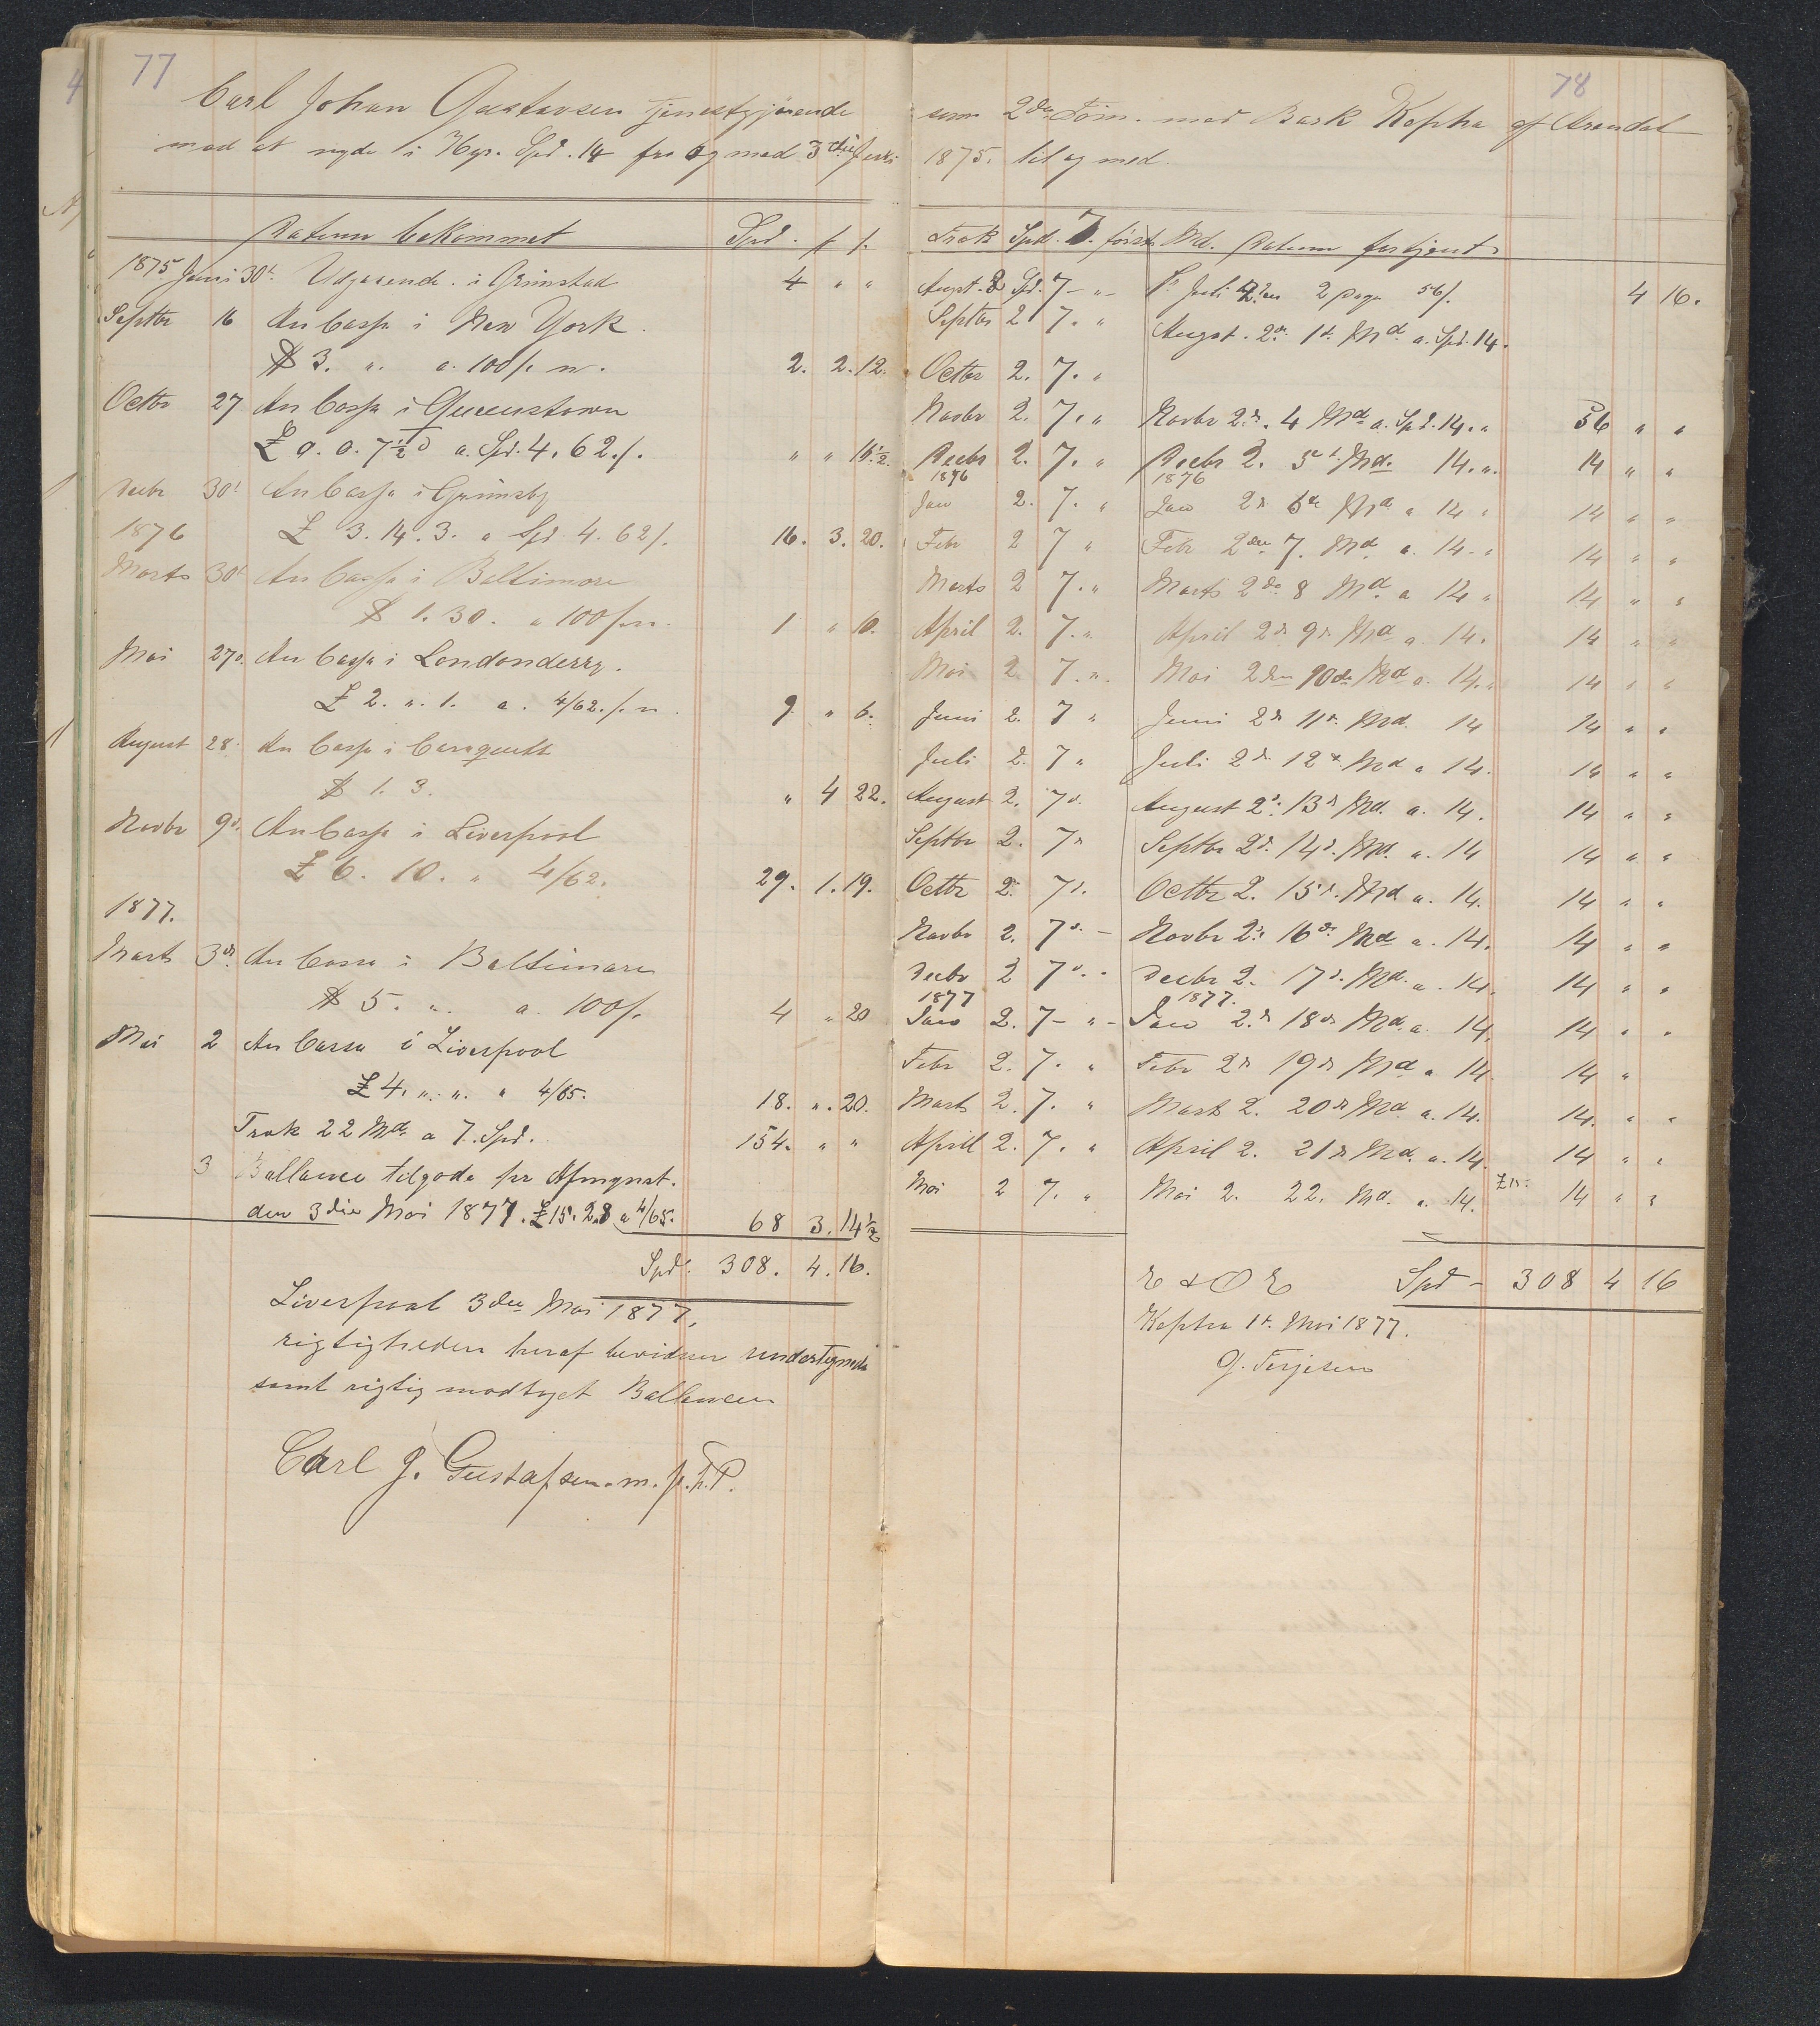 77
Carl Johan Gustavsen tjenestgjørende
mod at nyde i Hyr. Spd. 14 fra og med 3die Juni
Datum bekommet Spd. f f.
1875 Juni 30t. Udgaaende. i Grimstad 4 " "
Septbr 16 An Cassa i New York.
$ 3. ". a. 100 f. n. 2. 2. 12.
Octbr 27 An Cassa i Queenstown
£ 0. 0. 7½ D a. Spd. 4. 62. f. " " 16.½.
Decbr 30t An Cassa i Grimsby
1876 £ 3. 14. 3. a Spd 4. 62 f. 16. 3. 20.
Marts 30t An Cassa i Baltimore
$ 1. 30. a 100 f. n. 1 " 10.
Mai 27d. An Cassa i Londonderry.
£ 2. ". 1. a. 4/62. f. n. 9 " 6.
August 28. An Cassa i Caraquette
$ 1. 3. " 4 22.
Novbr 9d. An Cassa i Liverpool
£ 6. 10. " 4/62. 29. 1. 19.
1877.
Marts 3de. An Cassa i Baltimore
$ 5. ". a. 100 f. 4 " 20
Mai 2 An Cassa i Liverpool
£ 4. ". ". a 4/65. 18. ". 20.
Træk 22 Md. a 7. Spd. 154. " "
3 Ballance tilgode pr Afmynst.
den 3die Mai 1877. £ 15. 2. 8 a 4/65. 68 3. 14½
Spd. 308. 4. 16.
Liverpool 3die Mai 1877,
rigtigheden heraf bevidner undertegnede
samt rigtig modtaget Ballancen
Carl J. Gustafsen. m. p. P.
78
som 2den Tøm. med Bark Kepha af Arendal
1875. til og med.
Træk Spd. 7. første Md. Datum fortjent
August. 2 Spd. 7 - " - Pr Juli 2den 2 Dage 56 f. 4 16.
Septbr 2 7. " August. 2de. 1t. Md. a. Spd. 14.
Octbr 2. 7. "
Novbr 2. 7. " Novbr 2d. 4 Md a. Spd. 14. " 56 " "
Decbr 2. 7. " Decbr 2. 5t Md. 14. ". 14 " "
1876 1876
Jan 2. 7. " Jan 2d 6te Md a 14 " 14 " "
Febr 2 7 " Febr 2den 7. Md a. 14 - " 14 " "
Marts 2 7. " Marts 2de 8 Md. a 14 " 14 " "
April 2. 7. " April 2d 9d Md a. 14. 14 " "
Mai 2 7. ". Mai 2den 10de Md a. 14. " 14 " "
Juni 2. 7 " Juni 2d 11t. Md. 14 14 " "
Juli 2. 7 " Juli 2d. 12t. Md a 14. 14 " "
August 2. 7d. August 2d. 13d Md. a. 14. 14 " "
Septbr 2. 7d Septbr 2d. 14d. Md. a. 14 14 " "
Octbr 2. 7d. Octbr 2. 15d. Md a. 14. 14 " "
Novbr 2. 7d. - Novbr 2d 16de Md a. 14. 14 " "
Decbr 2 7d. - Decbr 2. 17d. Md. a. 14. 14 " "
1877 1877.
Jan 2. 7 - " - Jan 2.d 18de Md. a. 14. 14 " "
Febr 2. 7. " Febr 2d 19d Md a 14. 14 "
Marts 2. 7. " Marts 2. 20d Md a. 14. 14. " "
April 2. 7. " April 2. 21d Md. a. 14. 14 " "
Mai 2 7. " Mai 2. 22. Md a. 14. £ 15. 14 " "
E & O E Spd - 308 4 16
Kepha 1t. Mai 1877.
G. Terjesen